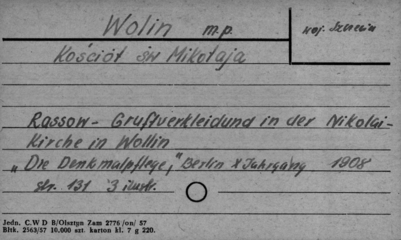 Wolin m.p. woj. Szczecin
Kościół św Mikołaja
Rassow - Gruftverkleidund in der Nikolai-
Kirche in Wollin
„Die Denkmalpflege," Berlin X Jahrgang 1908
str. 131 3 ilustr.
Jedn. C.W D 8/Olsztyn Zam 2776 /on/ 57
Bltk. 2563/57 10.000 szt. karton kl. 7 g 220.